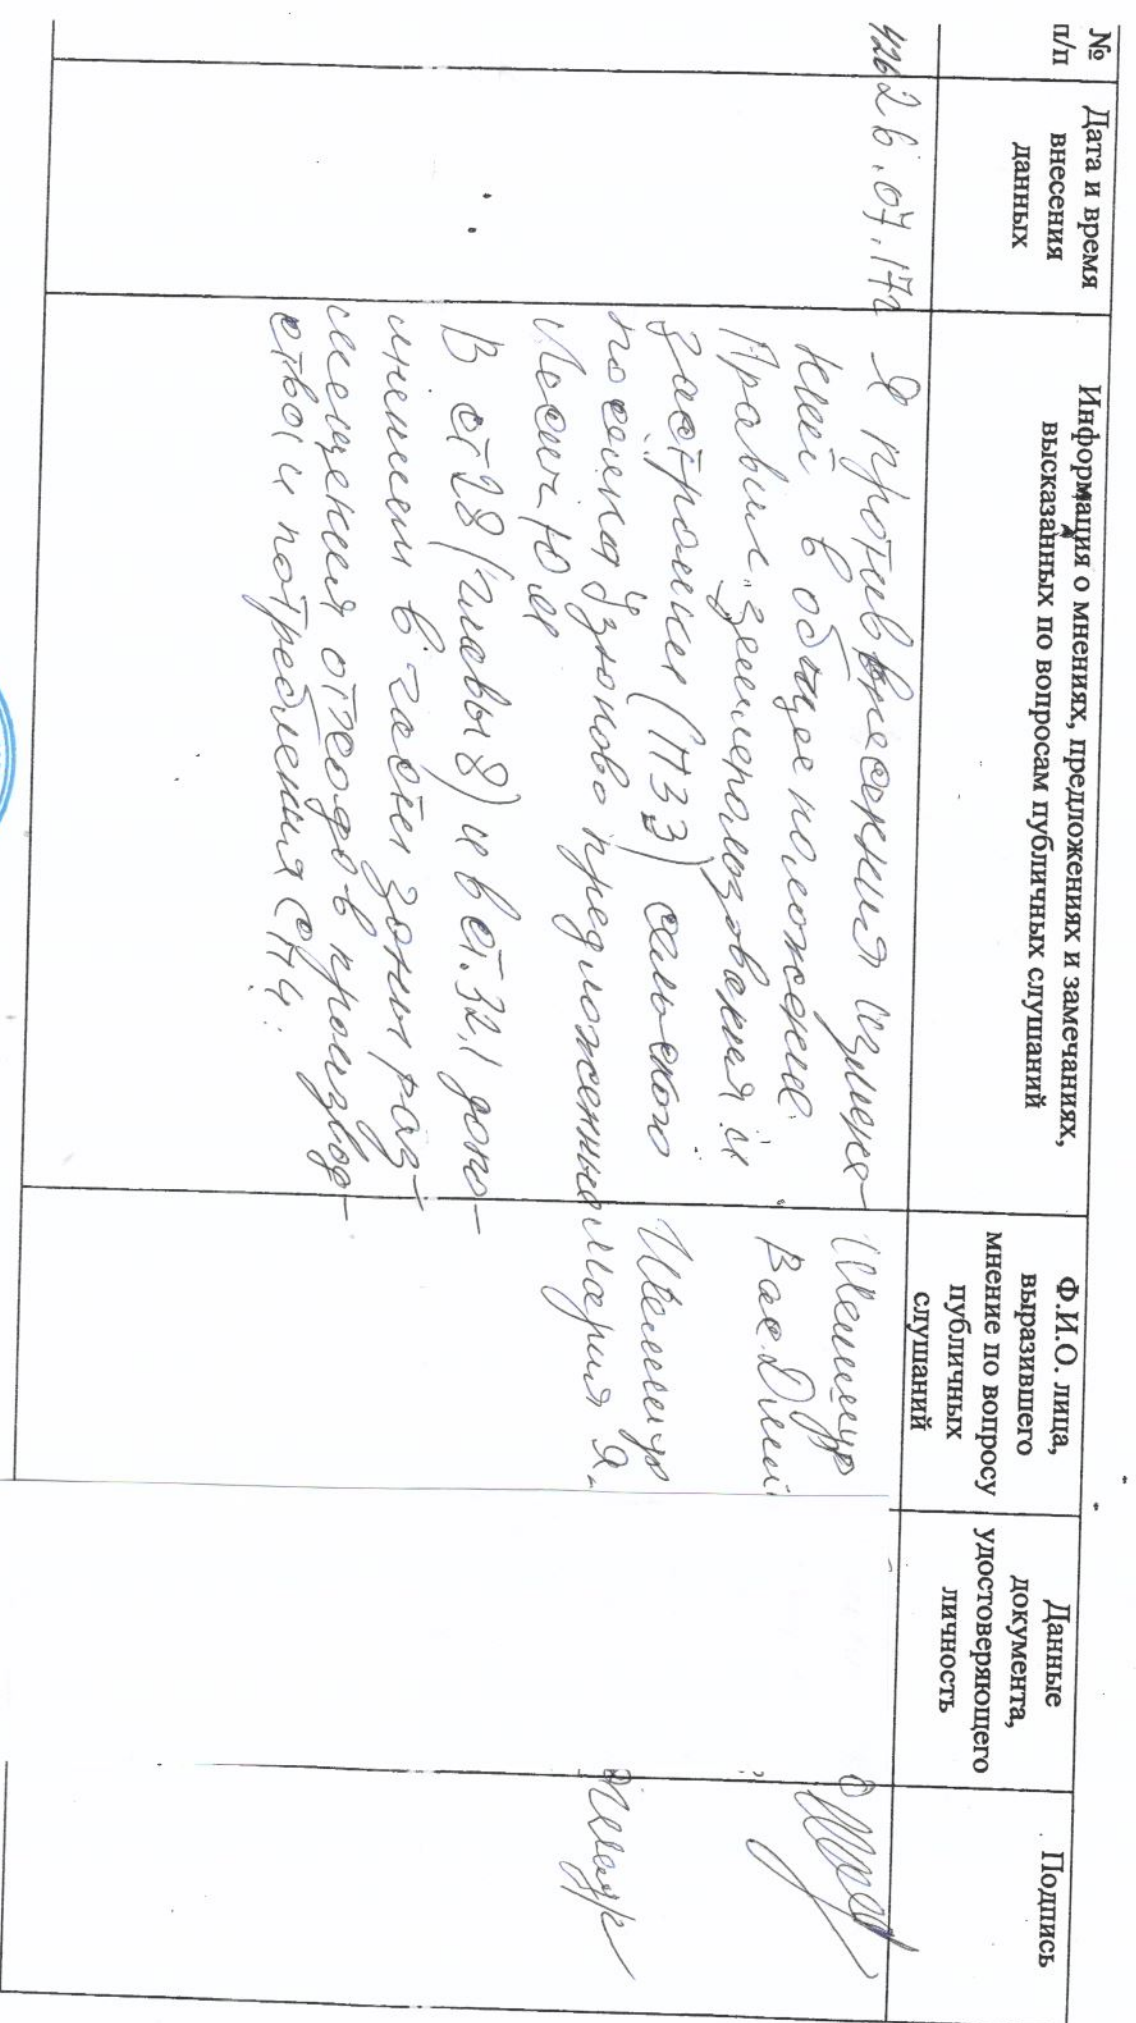 № п/п
Дата и время внесения данных
Информация о мнениях, предложениях и замечаниях, высказанных по вопросам публичных слушаний
Ф.И.О. лица, выразившего мнение по вопросу публичных слушаний
Данные документа, удостоверяющего личность
Подпись
26.07.17г
Я против внесения измене-
ний в общее положение
Правил землепользования и
застройки (ПЗЗ) сельского
поселка Узуново предложенные
В ст 28 (главы 8) и в ст. 32,1 допо-
лнением в части зоны раз-
мещения отходов производ-
ства и потребления СП4.
Вас. Дмит
Мария Я.